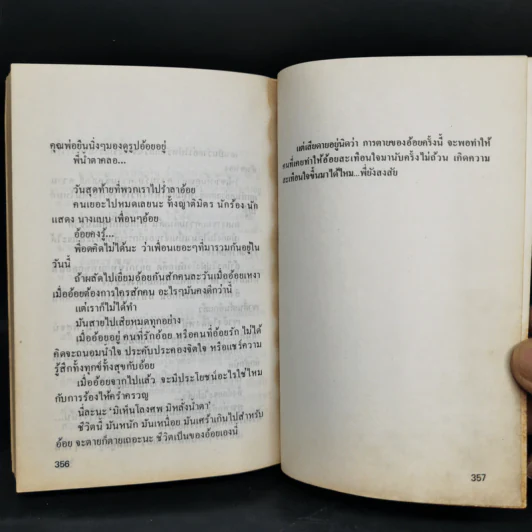 คุณพ่อยืนนิ่งๆมองดูรูปอ้อยอยู่
พี่น้ำตาคลอ...
วันสุดท้ายที่พวกเราไปรำลาอ้อย
คนเยอะไปหมดเลยนะ ทั้งญาติมิตร นักร้อง นัก
แสดง นางแบบ เพื่อนๆอ้อย
อ้อยคงรู้...
พี่อดคิดไม่ได้นะ ว่าเพื่อนเยอะๆที่มารวมกันอยู่ใน
วันนี้
ถ้าผลัดไปเยี่ยมอ้อยกันสักคนละวันเมื่ออ้อยเหงา
เมื่ออ้อยต้องการใครสักคน อะไรๆมันคงดีกว่านี้
แต่เราก็ไม่ได้ทำ
มันสายไปเสียหมดทุกอย่าง
เมื่ออ้อยอยู่ คนที่รักอ้อย หรือคนที่อ้อยรัก ไม่ได้
คิดจะถนอมน้ำใจ ประคับประคองจิตใจ หรือแชร์ความ
รู้สึกทั้งทุกข์ทั้งสุขกับอ้อย
เมื่ออ้อยจากไปแล้ว จะมีประโยชน์อะไรใช่ไหม
กับการร้องไห้คร่ำครวญ
นี่ละนะ 'มิเห็นโลงศพ มิหลั่งน้ำตา'
ชีวิตนี้ มันหนัก มันเหนื่อย มันเศร้าเกินไปสำหรับ
อ้อย จะตายก็ตายเถอะนะ ชีวิตเป็นของอ้อยเองนี่
356
แต่เสียดายอยู่นิดว่า การตายของอ้อยครั้งนี้ จะพอทำให้
คนที่เคยทำให้อ้อยสะเทือนใจมานับครั้งไม่ถ้วน เกิดความ
สะเทือนใจขึ้นมาได้ไหม...พี่ยังสงสัย
357